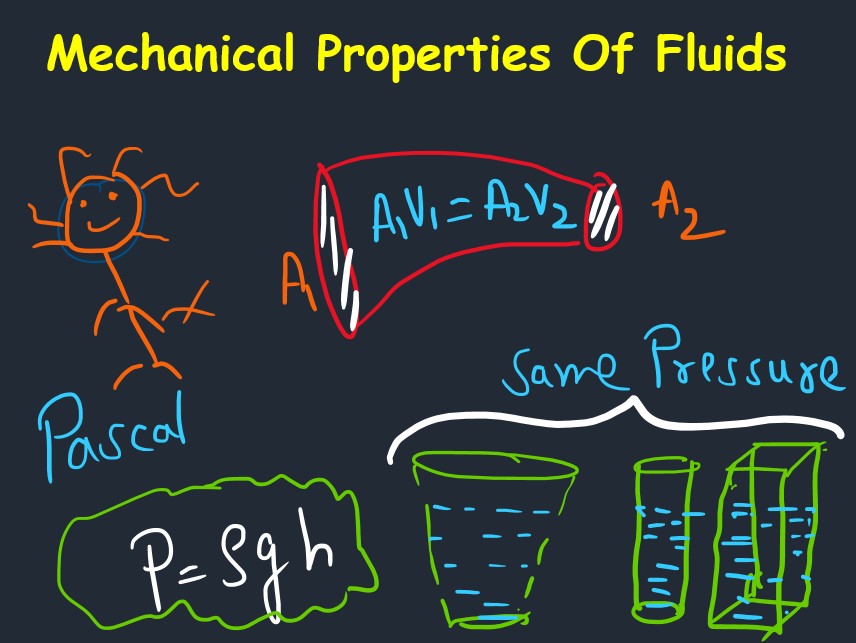 Mechanical Properties Of Fluids
A₁V₁ = A₂V₂
A₁
A₂
Same Pressure
Pascal
P = ρgh